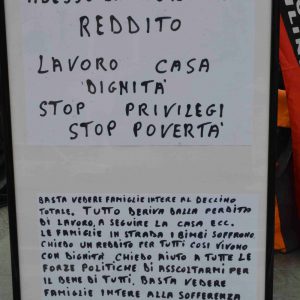 REDDITO
LAVORO CASA
DIGNITÀ
STOP PRIVILEGI
STOP POVERTA'
BASTA VEDERE FAMIGLIE INTERE AL DECLINO
TOTALE. TUTTO DERIVA DALLA PERDITA
DI LAVORO, A SEGUIRE LA CASA ECC.
LE FAMIGLIE IN STRADA I BIMBI SOFFRONO
CHIEDO UN REDDITO PER TUTTI COSI VIVONO
CON DIGNITÀ CHIEDO AIUTO A TUTTE LE
FORZE POLITICHE DI ASSCOLTARMI PER
IL BENE DI TUTTI, BASTA VEDERE
FAMIGLIE INTERE ALLA SOFFERENZA